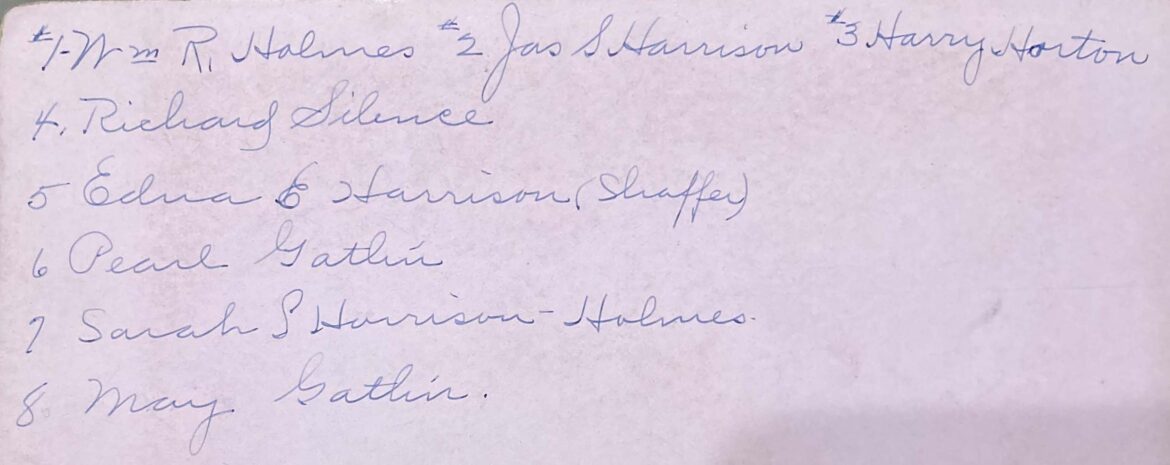 #1-Wm R, Holmes #2 Jas S Harrison #3 Harry Horton
4. Richard Silence
5 Edna E Harrison (Shaffer)
6 Pearl Gatlin
7 Sarah S Harrison-Holmes.
8 May Gatlin.